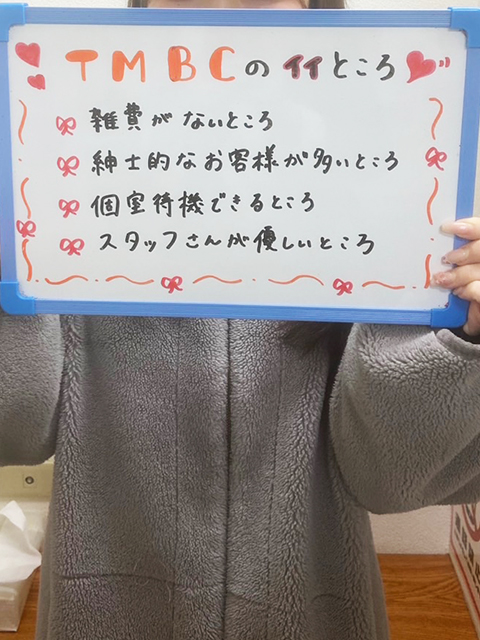 TMBCのイイところ
雑費がないところ
紳士的なお客様が多いところ
個室待機できるところ
スタッフさんが優しいところ